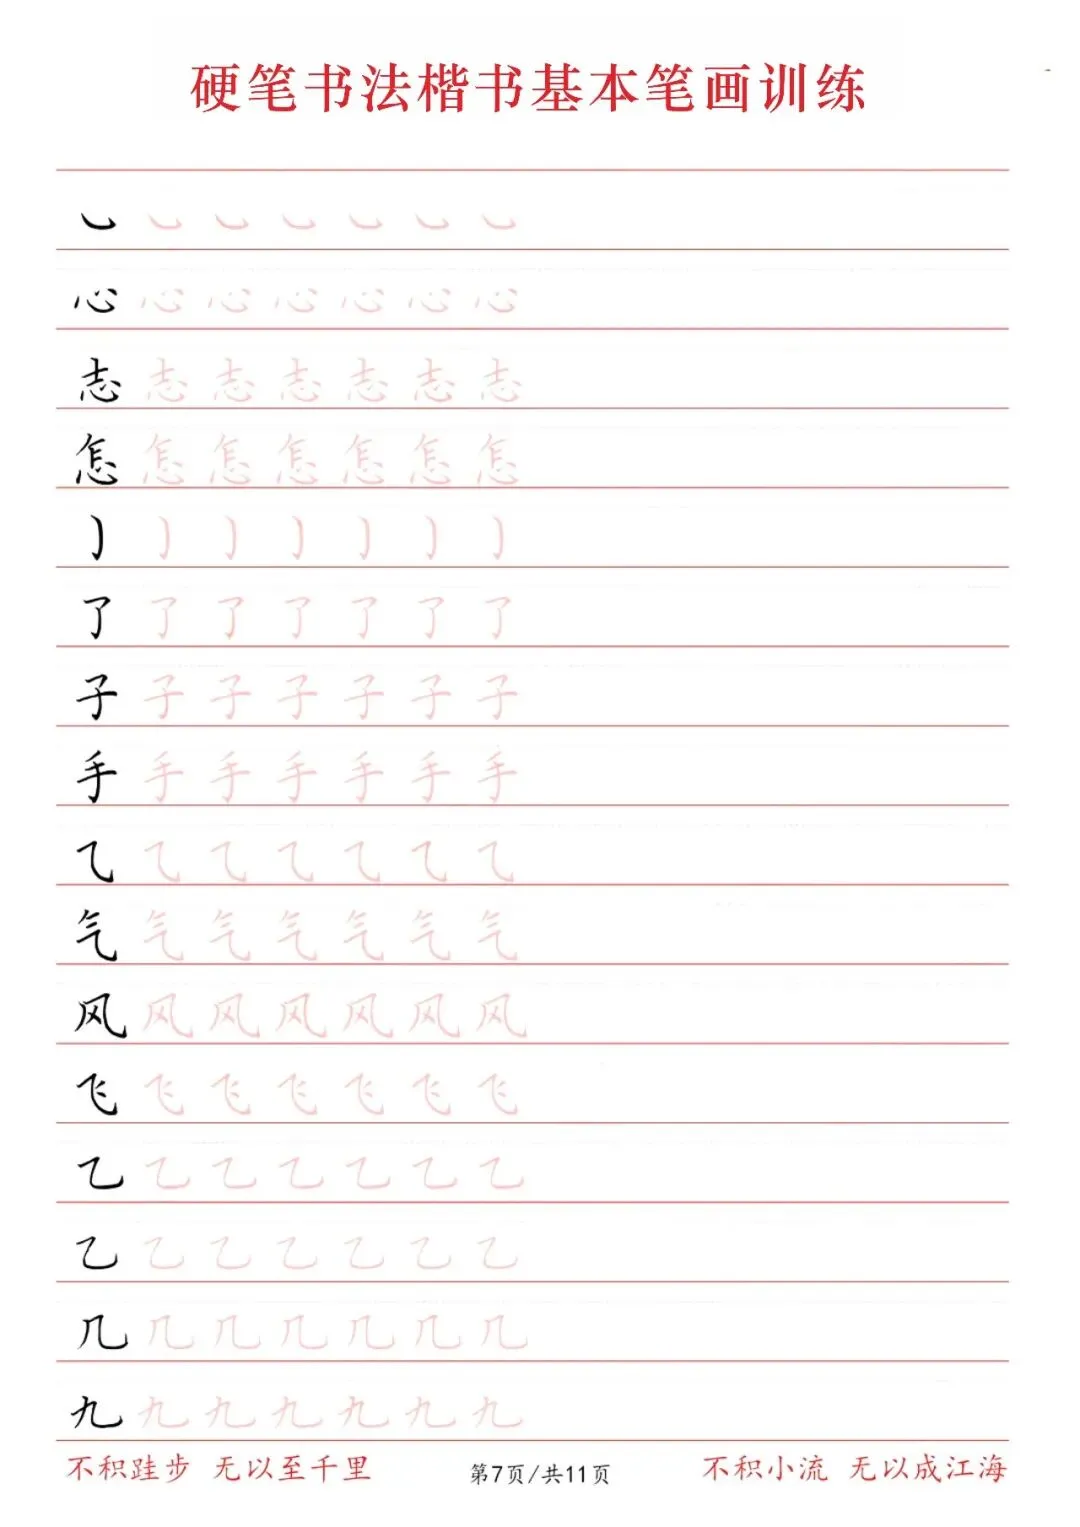 硬笔书法楷书基本笔画训练
㇃ ㇃ ㇃ ㇃ ㇃ ㇃ ㇃
心 心 心 心 心 心 心
志 志 志 志 志 志 志
怎 怎 怎 怎 怎 怎 怎
㇁ ㇁ ㇁ ㇁ ㇁ ㇁ ㇁
了 了 了 了 了 了 了
子 子 子 子 子 子 子
手 手 手 手 手 手 手
⺄ ⺄ ⺄ ⺄ ⺄ ⺄ ⺄
气 气 气 气 气 气 气
风 风 风 风 风 风 风
飞 飞 飞 飞 飞 飞 飞
乙 乙 乙 乙 乙 乙 乙
乙 乙 乙 乙 乙 乙 乙
几 几 几 几 几 几 几
九 九 九 九 九 九 九
不积跬步 无以至千里 第7页/共11页 不积小流 无以成江海